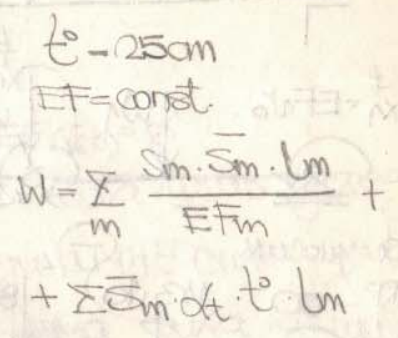 t° = 25cm
EF = const.
W = Σ_m (Sm · S̄m · lm) / (EFm) +
+ Σ S̄m · αt · t° · lm